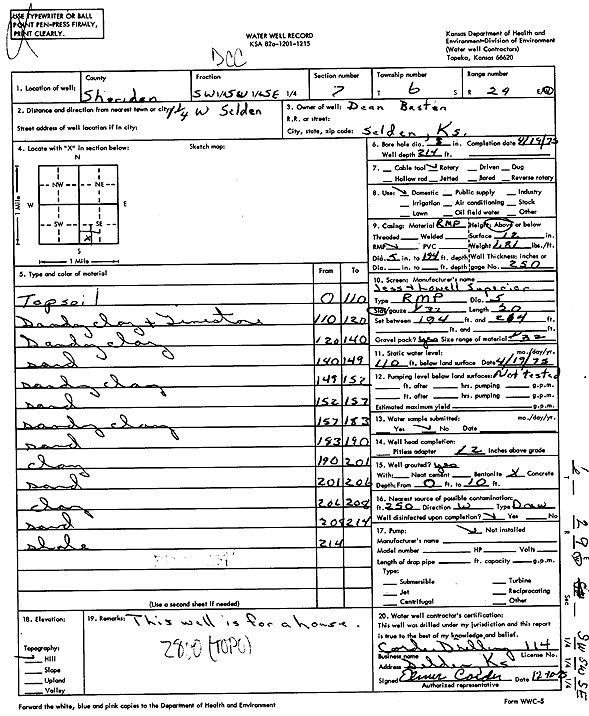 USE TYPEWRITER OR BALL
POINT PEN-PRESS FIRMLY,
PRINT CLEARLY.
WATER WELL RECORD
KSA 82a-1201-1215
Kansas Department of Health and
Environment-Division of Environment
(Water well Contractors)
Topeka, Kansas 66620
DCC
1. Location of well:
County
Sheridan
Fraction
SW 1/4 SW 1/4 SE 1/4
Section number
7
Township number
T 6 S
Range number
R 29 E/W
2. Distance and direction from nearest town or city: 1 1/4 W Selden
Street address of well location if in city:
3. Owner of well: Dean Basten
R.R. or street:
City, state, zip code: Selden, Ks.
4. Locate with "X" in section below:
Sketch map:
N
NW NE
W E
SW SE
X
S
1 Mile
1 Mile
6. Bore hole dia. 8 in. Completion date 4/19/75
Well depth 214 ft.
7. Cable tool Rotary Driven Dug
Hollow rod Jetted Bored Reverse rotary
8. Use: Domestic Public supply Industry
Irrigation Air conditioning Stock
Lawn Oil field water Other
9. Casing: Material RMP Height: Above or below
Threaded Welded Surface 12 in.
RMP PVC Weight lbs./ft.
Dia. 5 in. to 194 ft. depth Wall Thickness: inches or
Dia. in. to ft. depth gage No. 250
5. Type and color of material
From To
Topsoil 0 110
Sandy clay + Limestone 110 120
Sandy clay 120 140
sand 140 149
sandy clay 149 152
sand 152 157
sandy clay 157 183
sand 183 190
clay 190 201
sand 201 206
clay 206 208
sand 208 214
shale 214
(Use a second sheet if needed)
10. Screen: Manufacturer's name
Jess + Lowell Superior
Type RMP Dia. 5
Slot/gauze 1/32 Length 20
Set between 194 ft. and 214 ft.
ft. and ft.
Gravel pack? yes Size range of material 1/32
11. Static water level: mo./day/yr.
110 ft. below land surface Date 4/19/75
12. Pumping level below land surfaces: Not tested
ft. after hrs. pumping g.p.m.
ft. after hrs. pumping g.p.m.
Estimated maximum yield g.p.m.
13. Water sample submitted: mo./day/yr.
Yes No Date
14. Well head completion:
Pitless adapter 12 Inches above grade
15. Well grouted? yes
With: Neat cement Bentonite X Concrete
Depth: From 0 ft. to 10 ft.
16. Nearest source of possible contamination:
ft. 250 Direction W Type Draw
Well disinfected upon completion? Yes No
17. Pump: Not installed
Manufacturer's name
Model number HP Volts
Length of drop pipe ft. capacity g.p.m.
Type:
Submersible Turbine
Jet Reciprocating
Centrifugal Other
18. Elevation:
Topography:
Hill
Slope
Upland
Valley
19. Remarks: This well is for a house.
2830 (TOPO)
20. Water well contractor's certification:
This well was drilled under my jurisdiction and this report
is true to the best of my knowledge and belief.
Corder Drilling 114
Business name License No.
Address Selden Ks
Signed Elmer Corder Date
Authorized representative
Forward the white, blue and pink copies to the Department of Health and Environment
Form WWC-5
T 6 R 29 E W Sec SW SW SE
1/4 1/4 1/4